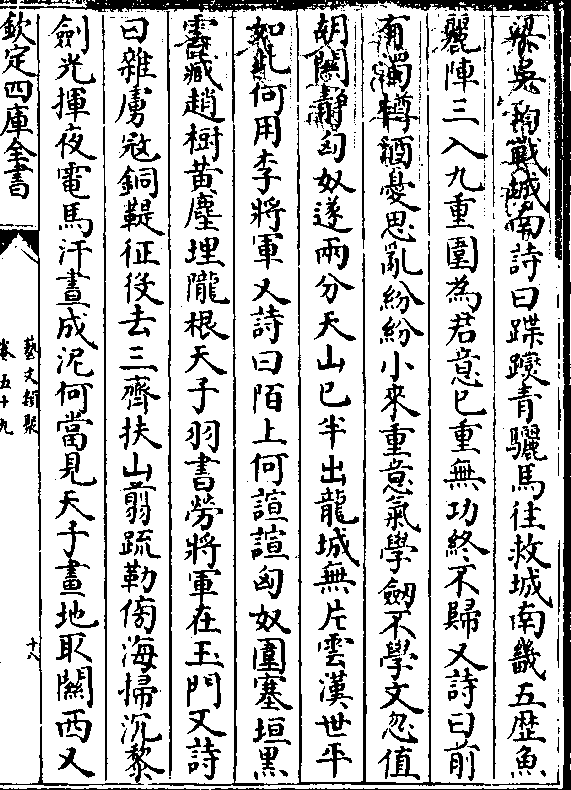 梁吳均戰城南詩曰蹀躞青驪馬往救城南畿五歴魚
麗陣三入九重圍為君意已重無功終不歸又詩曰前
有濁樽酒憂思亂紛紛小來重意氣學劒不學文忽值
胡關靜匈奴遂兩分天山已半出龍城無片雲漢世平
如此何用李將軍又詩曰陌上何諠諠匈奴圍塞垣黒
雲藏趙樹黄塵埋隴根天子羽書勞將軍在玉門又詩
曰雜虜冦銅鞮征役去三齊扶山翦疏勒傍海掃沉黎
劍光揮夜電馬汗晝成泥何當見天子畫地取關西又
欽定四庫全書
藝文類聚
卷五十九
十八